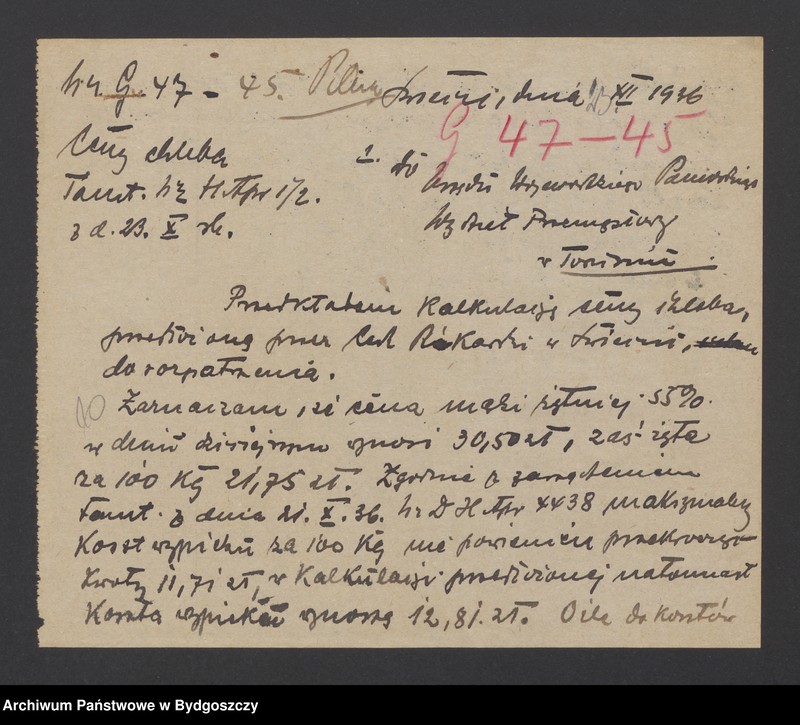 hr. G. 47 - 45. Pilne
Świecie, dnia XI 1936
G 47-45
Ceny chleba
Tamt. hr H.Apr 1/2.
z d. 23. X rb.
1. do
Urzędu Wojewódzkiego Pomorskiego
Wydział Przemysłowy
w Toruniu
Przedkładam kalkulację ceny chleba,
przedłożoną przez Cech Piekarski w Świeciu,
do rozpatrzenia.
Zaznaczam, że cena mąki żytniej 55%
w dniu dzisiejszym wynosi 30,50 zł, zaś żyta
za 100 kg 21,75 zł. Zgodnie z zarządzeniem
Tamt. z dnia 21. X. 36. hr D H Apr 4438 maksymalny
Koszt wypieku za 100 kg nie powinien przekraczać
kwoty 11,71 zł, w kalkulacji przedłożonej natomiast
Koszta wypieku wynoszą 12,81 zł. O ile do kosztów
Archiwum Państwowe w Bydgoszczy